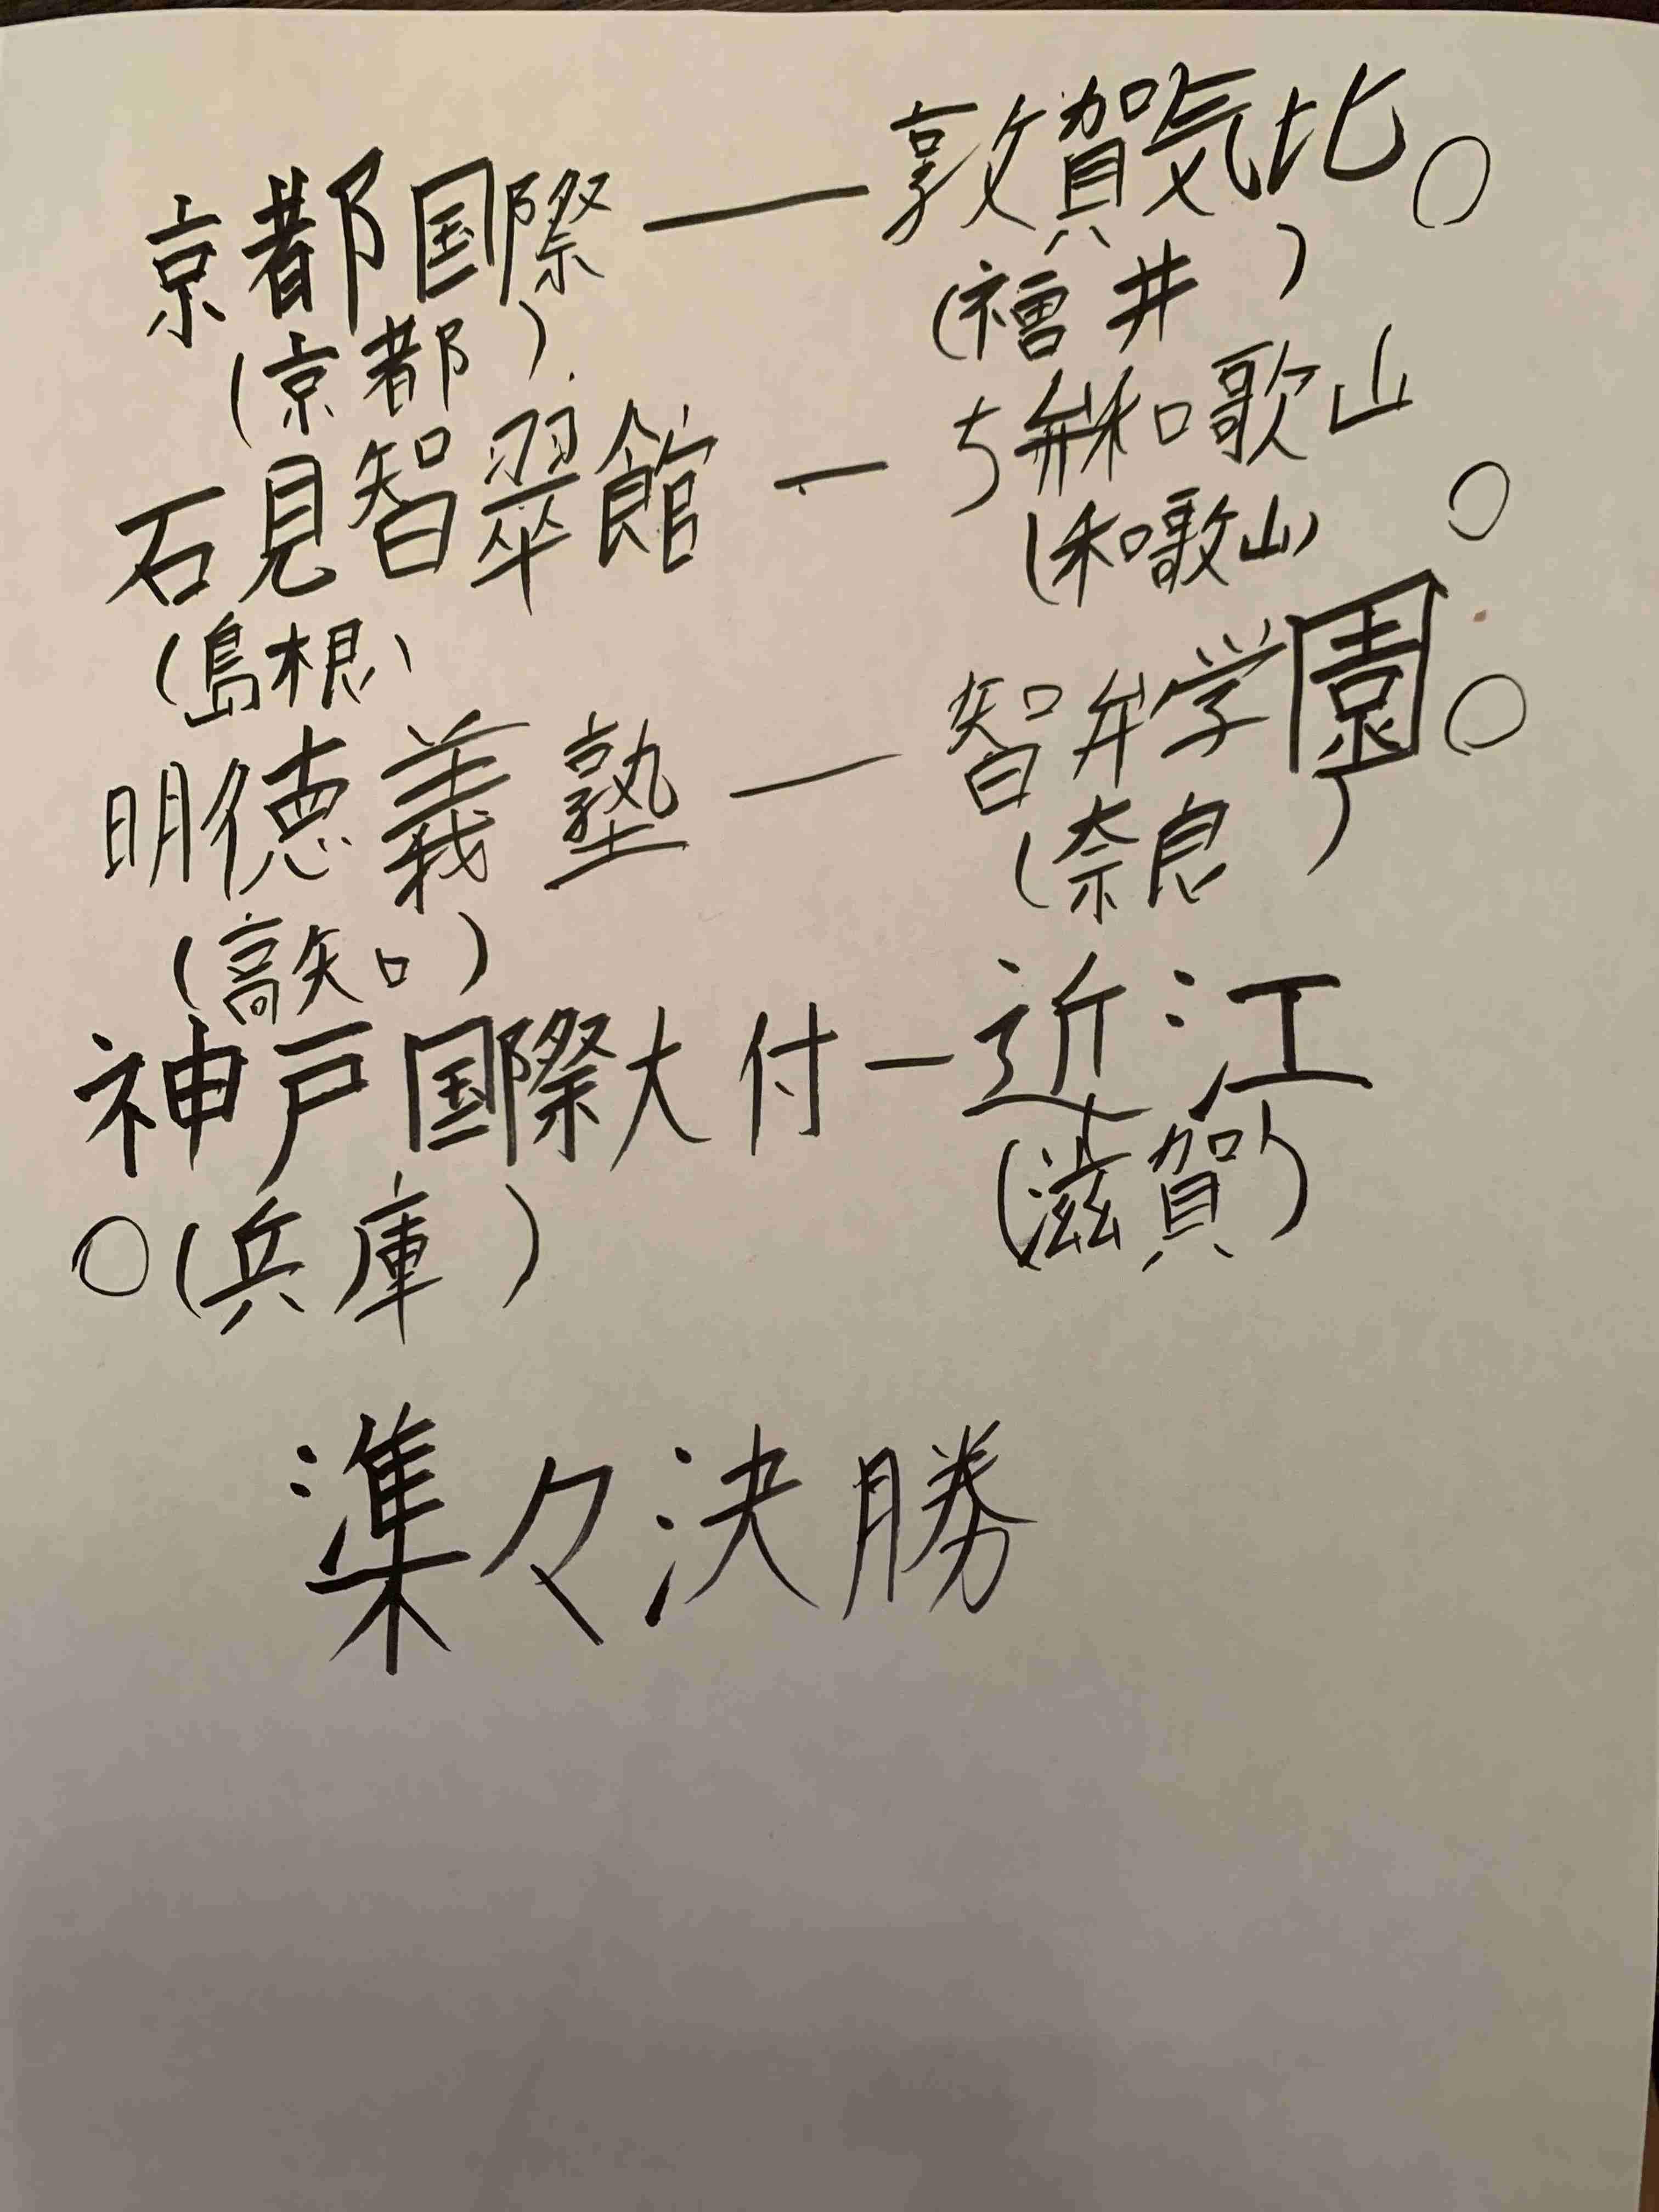 京都国際ー敦賀気比○
(京都) (福井)
石見智翠館ーち弁和歌山○
(島根) (和歌山)
明徳義塾ー智弁学園○
(高知) (奈良)
神戸国際大付ー近江
○(兵庫) (滋賀)
準々決勝